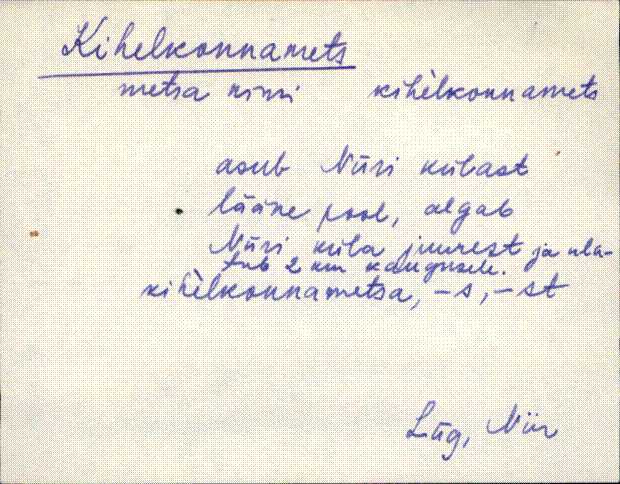 Kihelkonnamets
metsa nimi kihèlkonnamets
asub Nüri külast
lääne pool, algab
Nüri küla juurest ja ula-
tub 2 km kaugusele.
kihèlkonnametsa, -s, -st
Lüg, Nür